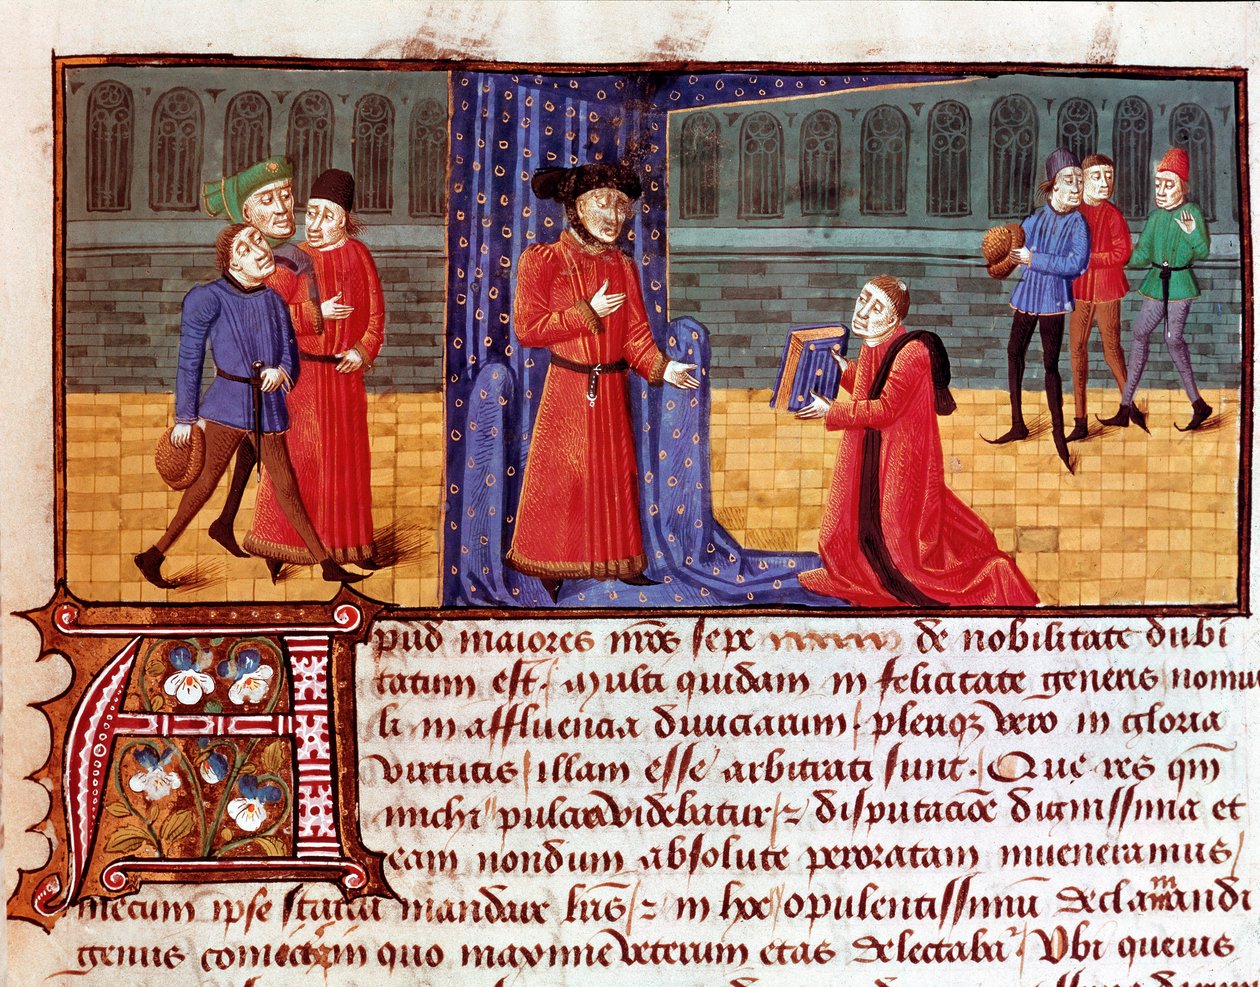 Apud maiores nr̄os sepe de nobilitate dubi
tatum est. Multi quidam in felicitate generis nonnu
li in affluencia diviciarum / pleriq3 vero in gloria
virtutis / illam esse / arbitrati sunt. Que res qm̄
michi pulcra videbatur / et disputacōe dignissima et
eam nondum absolute peroratam inveneramus /
mecum ipse mandare lr̄is / et in hoc opulentissimū declamandi
genus quo maxime veterum etas delectabar̄. Ubi quevis